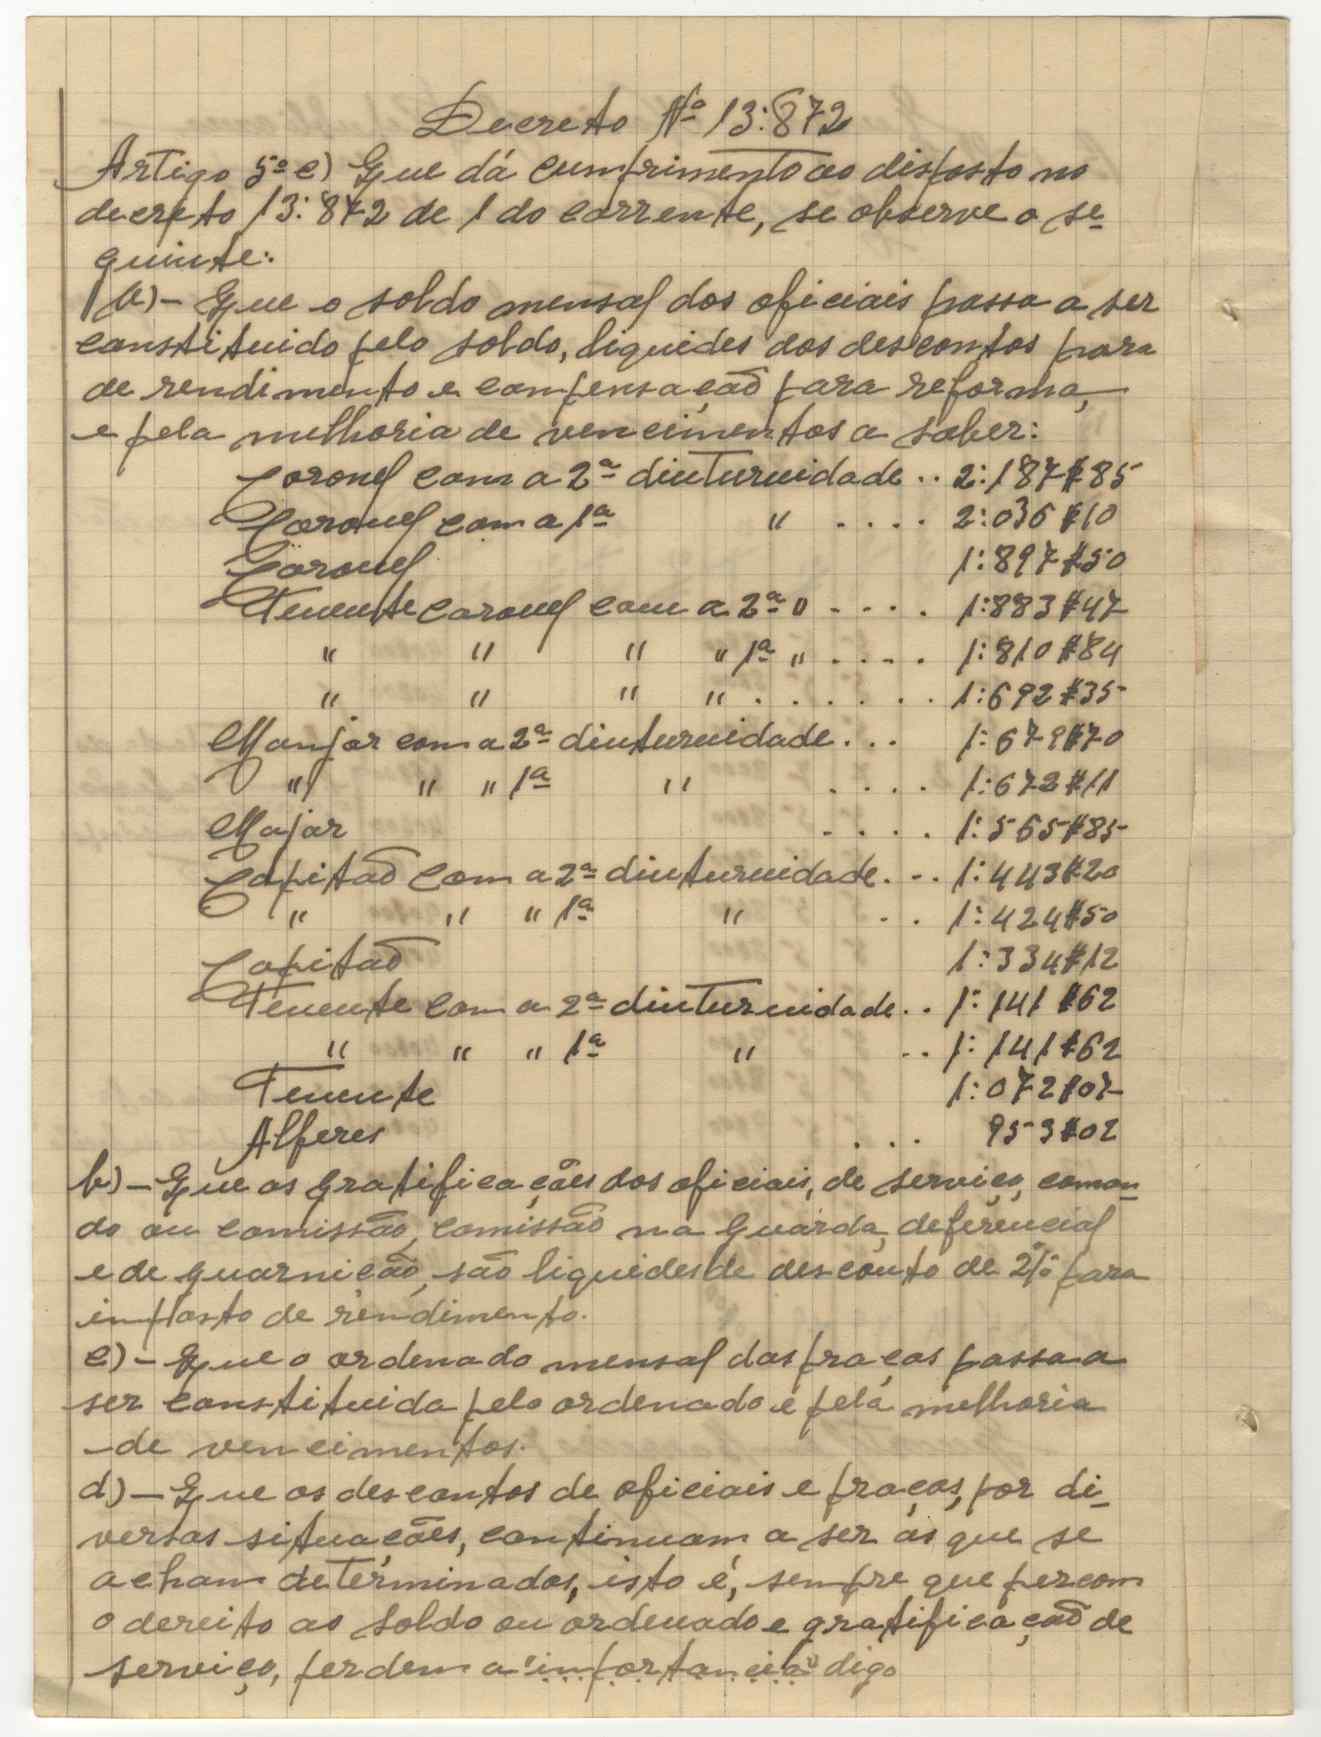 Decreto Nº 13:872
Artigo 5º e) Que dá cumprimento ao disposto no
decreto 13:872 de 1 do corrente, se observe o se-
guinte:
a) - Que o soldo mensal dos oficiais passa a ser
constituido pelo soldo, liquides dos descontos para
de rendimento e compensação para reforma,
e pela melhoria de vencimentos a saber:
Coronel com a 2ª diuturnidade .. 2:187$85
Coronel com a 1ª " .... 2:036$10
Coronel 1:897$50
Tenente coronel com a 2ª " .... 1:883$47
" " " " 1ª " .... 1:810$84
" " " " ...... 1:692$35
Manjor com a 2ª diuturnidade... 1:679$70
" " " 1ª " .... 1:672$11
Major .... 1:565$85
Capitão com a 2ª diuturnidade... 1:443$20
" " " 1ª " .. 1:424$50
Capitão 1:334$12
Tenente com a 2ª diuturnidade.. 1:141$62
" " " 1ª " .. 1:141$62
Tenente 1:072$07
Alferes ... 953$02
b) - Que as gratificações dos oficiais, de serviço, coman-
do ou comissão, comissão na Guarda, deferencial
e de guarnição, são liquides de desconto de 2% para
imposto de rendimento.
c) - Que o ordenado mensal das praças passa a
ser constituida pelo ordenado e pela melhoria
-de vencimentos.
d) - Que os descontos de oficiais e praças, por di-
versas situações, continuam a ser as que se
acham determinados, isto é, sempre que percam
o dereito ao soldo ou ordenado e gratificação de
serviço, perdem a "importancia" digo